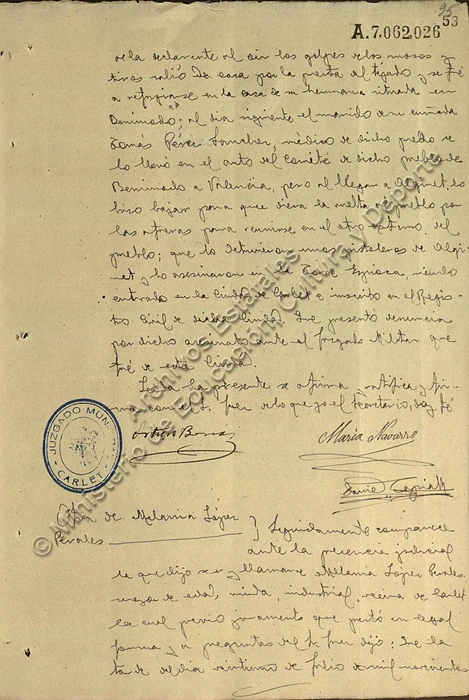 95
53
A.7.062,026
de la declarante al oir los golpes de los mozos y
tiros salió de casa por la puerta al tejado y se fué
a refugiarse en la casa de su hermana situada en
Benimodo; al dia siguiente el marido de su cuñada
Tomás Pérez Sanchez, médico de dicho pueblo se
lo llevó en el auto del Comité de dicho pueblo de
Benimodo a Valencia, pero al llegar a Alginet, lo
hizo bajar para que diera la vuelta al pueblo por
las afueras para reunirse en el otro extremo del
pueblo; que lo detuvieron unos pistoleros de Algi-
net y lo asesinaron en la siendo
enterrado en la Ciudad de Carlet e inscrito en el Regis-
tro Civil de dicha Ciudad. Que presentó denuncia
por dicho asesinato ante el Juzgado Militar que
fué de esta Ciudad.
Leida la presente se afirma, ratifica y fir-
ma con el Sr. Juez de lo que yo el Secretario, doy fé
Maria Navarro
JUZGADO MUNI
CARLET
de Melania López
Perales
Seguidamente comparece
ante la presencia judicial
la que dijo ser y llamarse Melania López Perales
mayor de edad, viuda, industrial, vecina de Carlet
la cual previo juramento que prestó en legal
forma y a preguntas del Sr. Juez dijo: Que la
tarde del dia veintiuno de Julio de mil novecientos
© Ministerio de Educación, Cultura y Deporte
Archivos Estatales